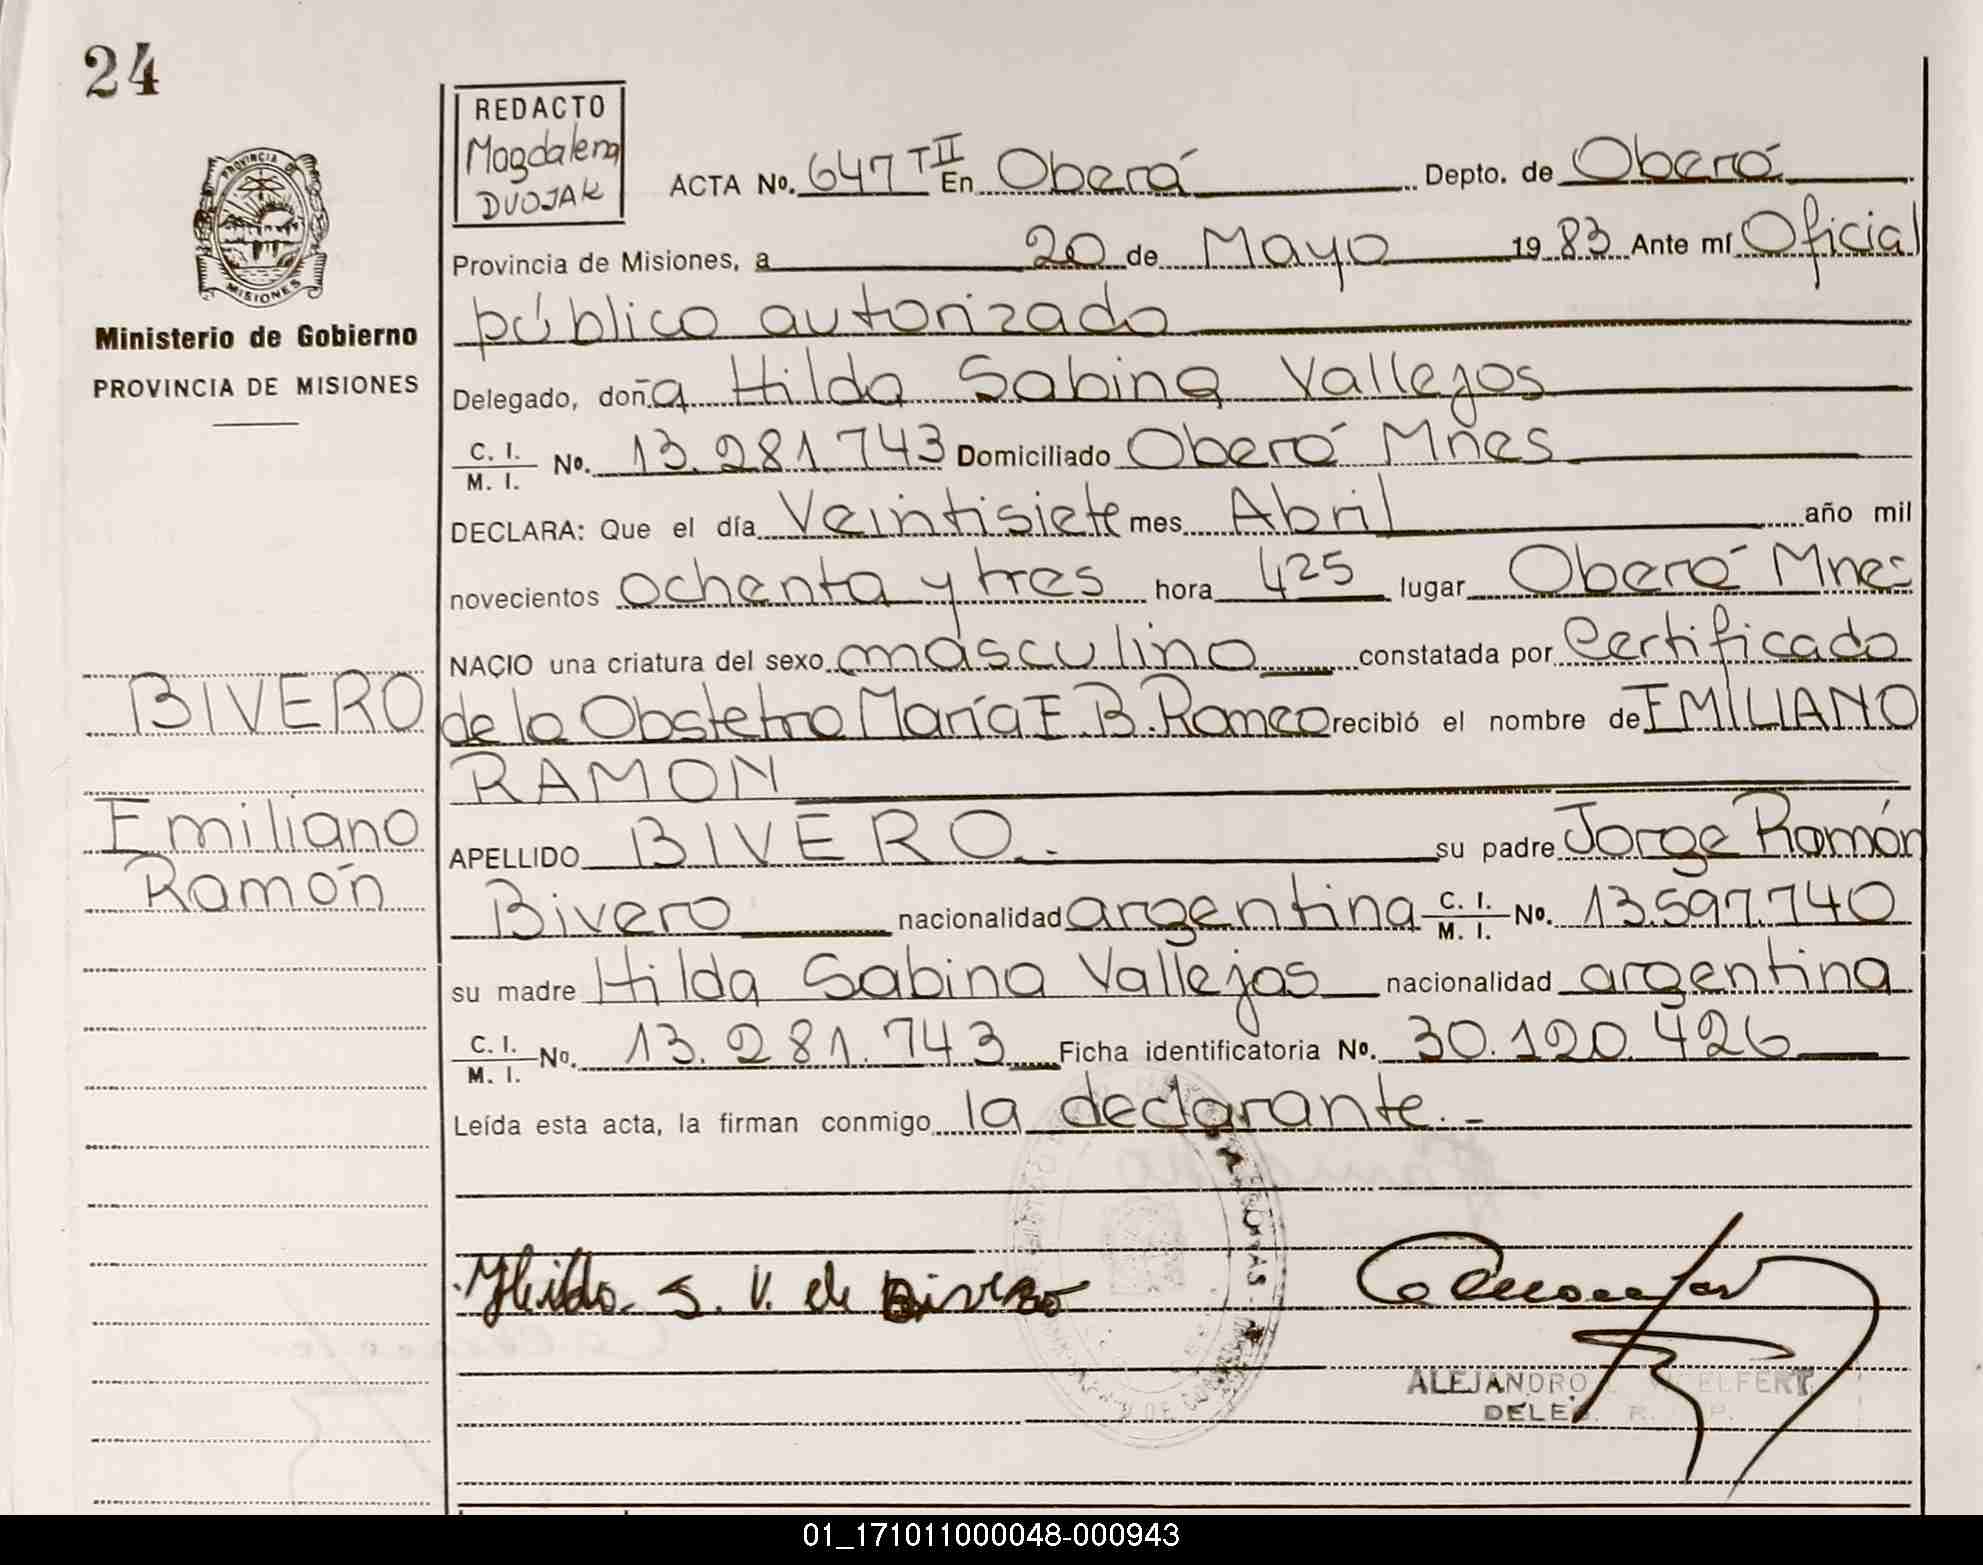 24
REDACTO
Magdalena
DVOJAK
PROVINCIA DE
MISIONES
Ministerio de Gobierno
PROVINCIA DE MISIONES
ACTA No. 647 T II En Oberá Depto. de Oberá
Provincia de Misiones, a 20 de Mayo 19 83 Ante mí Oficial
público autorizado
Delegado, doña Hilda Sabina Vallejos
C. I. / M. I. No. 13.281.743 Domiciliado Oberá Mnes
DECLARA: Que el día Veintisiete mes Abril año mil
novecientos ochenta y tres hora 425 lugar Oberá Mnes
NACIO una criatura del sexo masculino constatada por Certificado
BIVERO
de la Obstetra María E. B. Romeo recibió el nombre de EMILIANO
RAMON
Emiliano
Ramón
APELLIDO BIVERO.- su padre Jorge Ramón
Bivero nacionalidad argentina C. I. / M. I. No. 13.597.740
su madre Hilda Sabina Vallejos nacionalidad argentina
C. I. / M. I. No. 13.281.743 Ficha identificatoria No. 30.120.426
Leída esta acta, la firman conmigo la declarante.-
Hilda S. V. de Bivero
ALEJANDRO
DELEG. R. P.
01_171011000048-000943